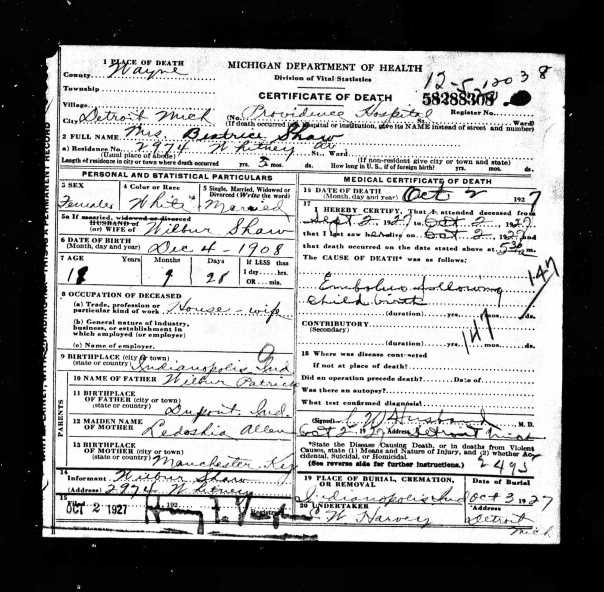 1 PLACE OF DEATH
County Wayne
MICHIGAN DEPARTMENT OF HEALTH
Division of Vital Statistics
Township
CERTIFICATE OF DEATH
Village
Register No.
City Detroit Mich (No. Providence Hospital Ward)
(If death occurred in a hospital or institution, give its NAME instead of street and number)
2 FULL NAME Mrs. Beatrice Shaw
(a) Residence No. 2974 Whitney av St., Ward.
(Usual place of abode) (If non-resident give city or town and state)
Length of residence in city or town where death occurred yrs. 5 mos. ds. How long in U. S., if of foreign birth? yrs. mos. ds.
PERSONAL AND STATISTICAL PARTICULARS
3 SEX
Female
4 Color or Race
White
5 Single, Married, Widowed or Divorced (Write the word)
Married
5a If married, widowed or divorced
HUSBAND of
(or) WIFE of Wilbur Shaw
6 DATE OF BIRTH
(Month, day and year) Dec 4 - 1908
7 AGE Years Months Days If LESS than
1 day hrs.
OR min.
18 9 28
8 OCCUPATION OF DECEASED
(a) Trade, profession or particular kind of work House-wife
(b) General nature of industry, business, or establishment in which employed (or employer)
(c) Name of employer.
9 BIRTHPLACE (city or town)
(state or country) Indianapolis Ind
PARENTS
10 NAME OF FATHER Wilbur Patrick
11 BIRTHPLACE OF FATHER (city or town)
(state or country) Dupont, Ind.
12 MAIDEN NAME OF MOTHER Ledoshia Allen
13 BIRTHPLACE OF MOTHER (city or town)
(state or country) Manchester Ky
14
Informant Wilbur Shaw
(Address) 2974 Whitney
15
Filed OCT 2 1927 192
Registrar
MEDICAL CERTIFICATE OF DEATH
16 DATE OF DEATH
(Month, day and year) Oct 2 1927
17
I HEREBY CERTIFY, That I attended deceased from
Sept 2, 1927, to Oct 2, 1927
that I last saw her alive on Oct 2 1927 and
that death occurred on the date stated above at
The CAUSE OF DEATH* was as follows:
Embolus following
child birth
147
(duration) yrs. mos. ds.
CONTRIBUTORY
(Secondary)
147
(duration) yrs. mos. ds.
18 Where was disease contracted
If not at place of death?
Did an operation precede death? Date of
Was there an autopsy?
What test confirmed diagnosis?
(Signed) M. D.
Oct 2 1927 Address Detroit Mich
*State the Disease Causing Death, or in deaths from Violent Causes, state (1) Means and Nature of Injury, and (2) whether Accidental, Suicidal, or Homicidal.
(See reverse side for further instructions.)
2495
19 PLACE OF BURIAL, CREMATION, OR REMOVAL
Indianapolis Ind
Date of Burial
Oct 3 1927
20 UNDERTAKER
W Harvey
Address
Detroit
Mich